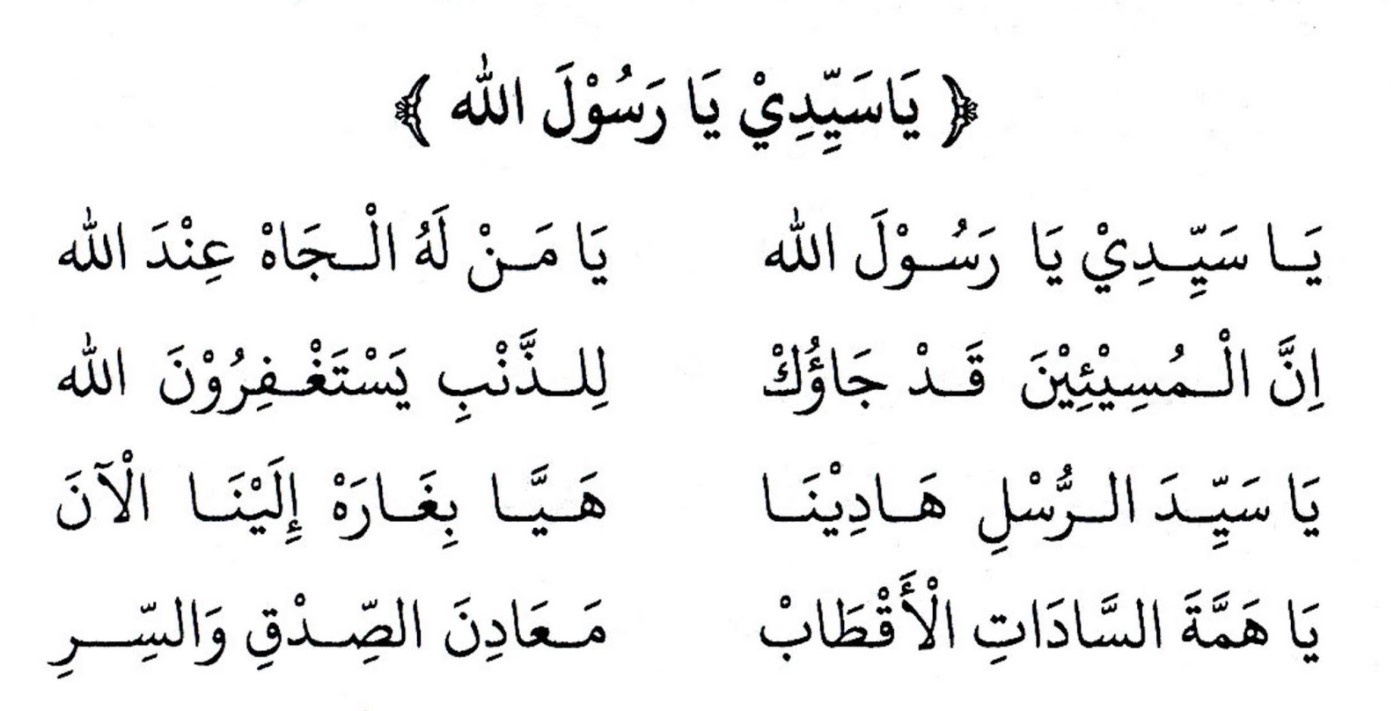 ﴿ يَاسَيِّدِيْ يَا رَسُوْلَ الله ﴾
يَـا سَيِّـدِيْ يَا رَسُـوْلَ الله يَا مَـنْ لَهُ الْـجَاهْ عِنْدَ الله
اِنَّ الْـمُسِيْئِيْنَ قَـدْ جَاؤُكْ لِلـذَّنْبِ يَسْتَغْـفِرُوْنَ الله
يَا سَيِّـدَ الـرُّسْلِ هَـادِيْنَـا هَـيَّـا بِغَـارَهْ إِلَيْنَـا الْآنَ
يَا هَمَّةَ السَّادَاتِ الْأَقْطَابْ مَـعَادِنَ الصِّـدْقِ وَالسِّـرِ